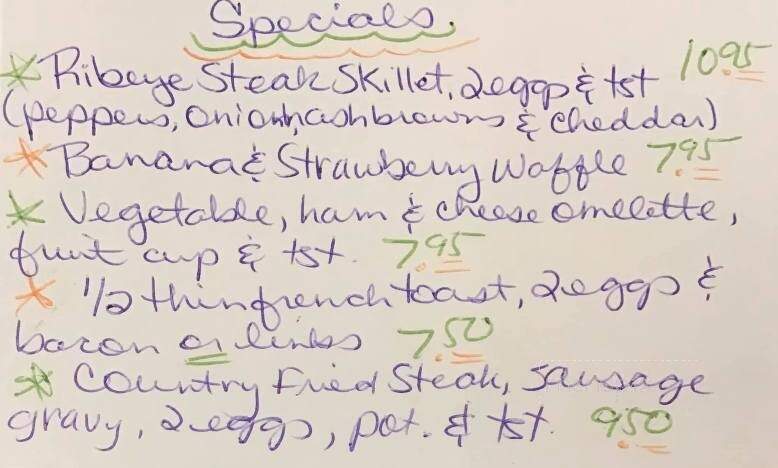 Specials.
* Ribeye Steak Skillet, 2eggs & tst 10.95
(peppers, onion, hashbrowns & cheddar)
* Banana & Strawberry Waffle 7.95
* Vegetable, ham & cheese omelette,
fruit cup & tst. 7.95
* 1/2 thin french toast, 2eggs &
bacon or links 7.50
* Country Fried Steak, sausage
gravy, 2eggs, pot. & tst. 9.50